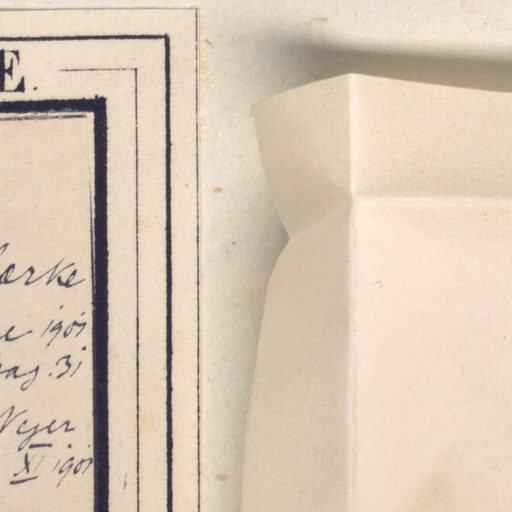 E.
ærke
1901
pag. 31
Nyer
XI 1901